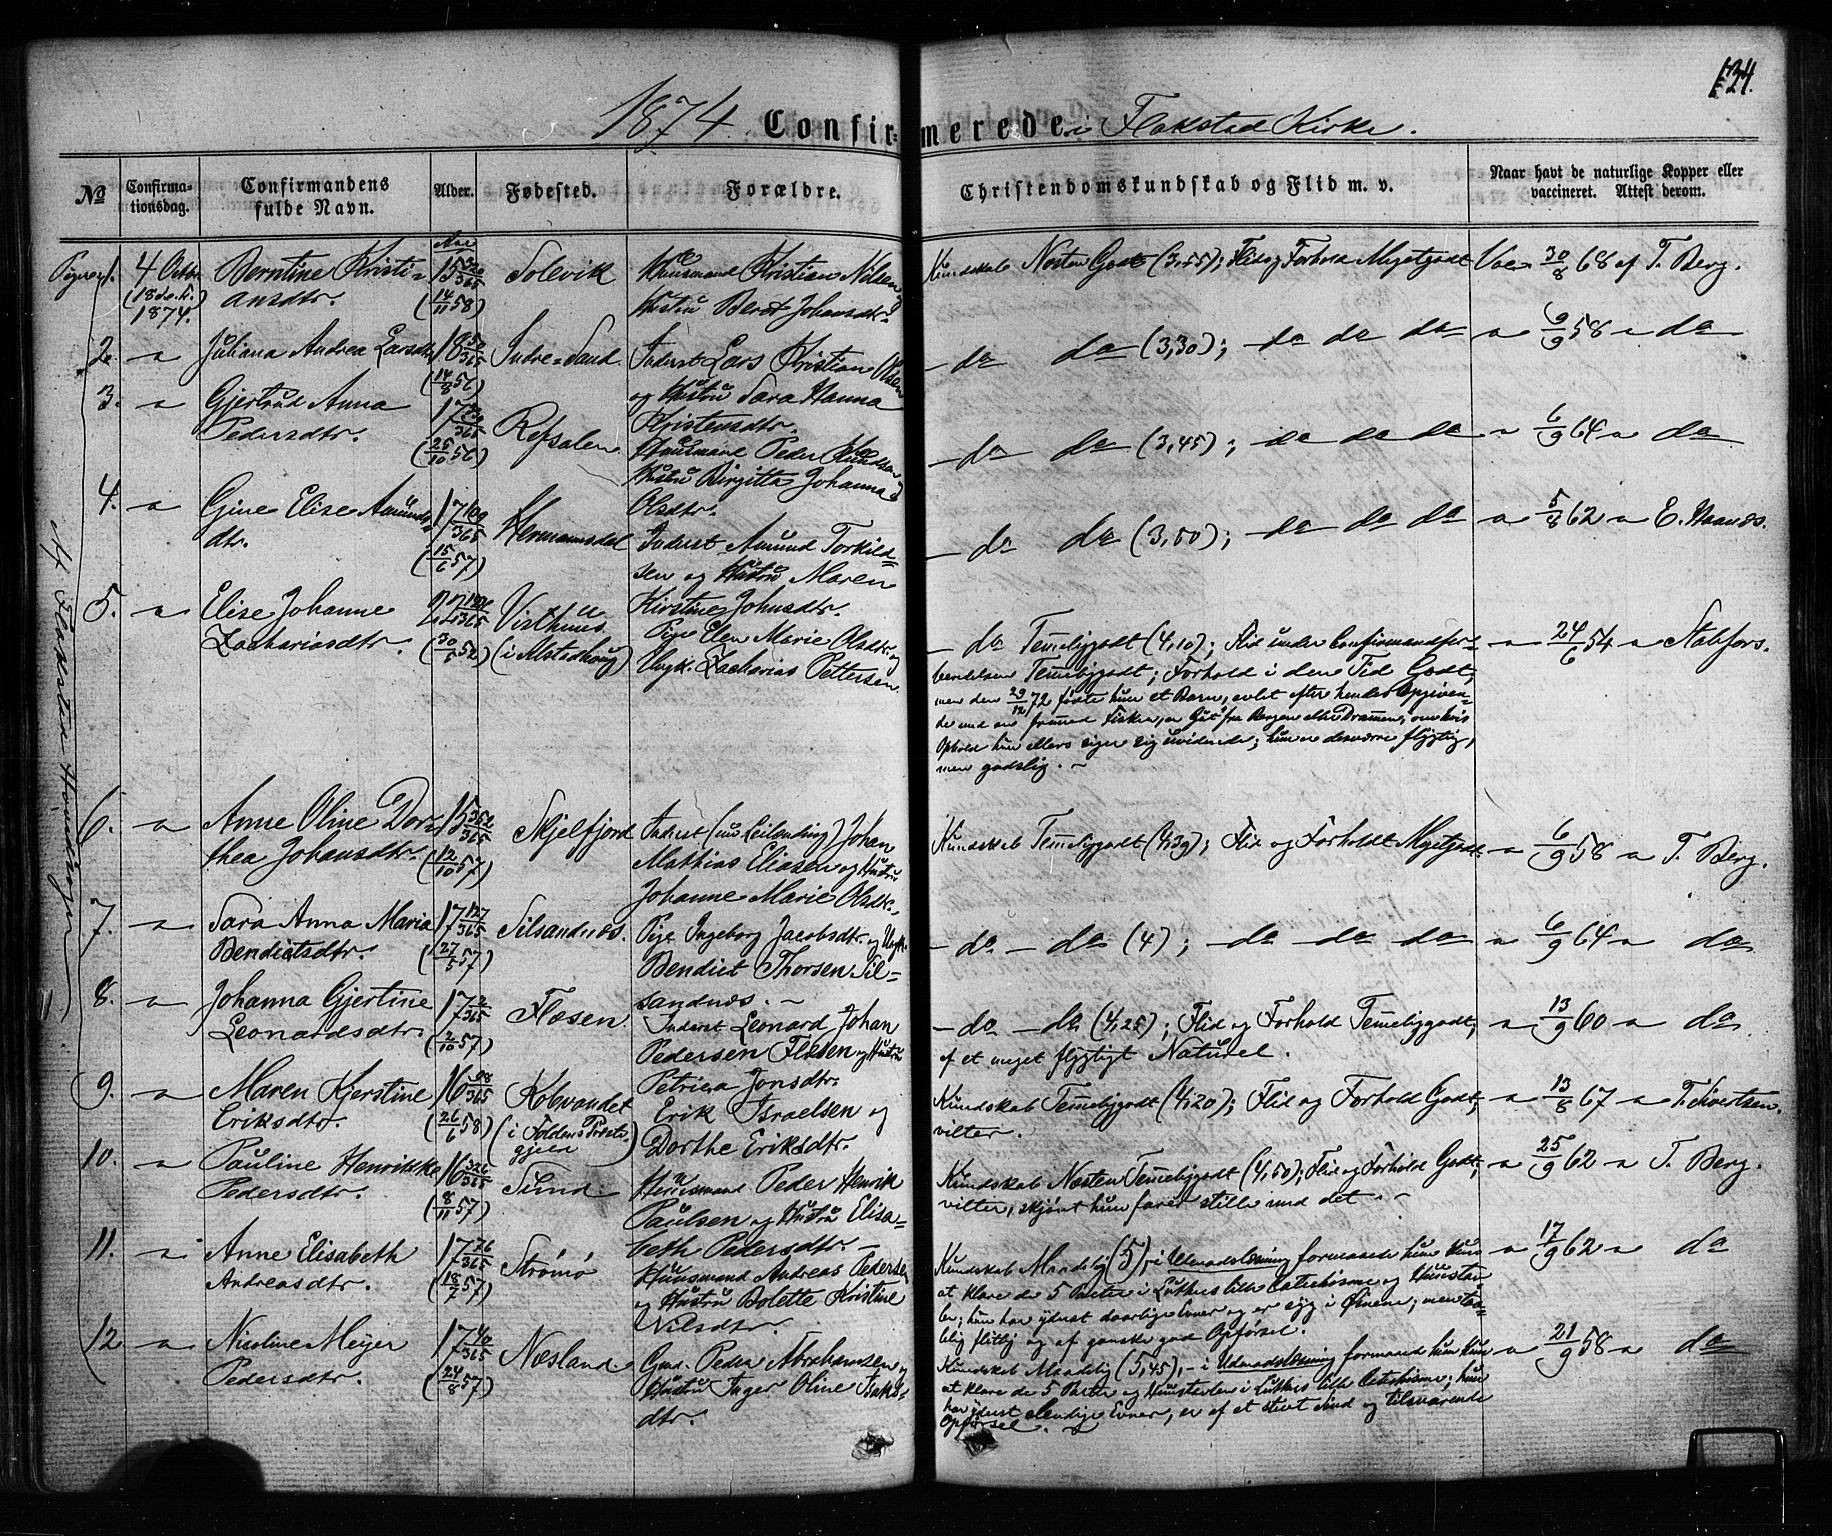 134.
1874. Confirmerede i Flakstad Kirke.
No
Confirmationsdag.
Confirmandens fulde Navn.
Alder.
Fødested.
Forældre.
Christendomskundskab og Flid m. v.
Naar havt de naturlige Kopper eller vaccineret. Attest derom.
Piger
Af Flakstad
1. 4 Octbr (18de S. e. Tr.) 1874. Berntine Kristi=
ansdtr. 15 320/365 (14/11 58) Solevik Huusmand Kristian Nilsen og
Hustru Beret Johansdtr. Kundskab Næsten Godt (3,55); Flid og Forhold Megetgodt Vac. 30/8 68 af T. Berg.
2. " Juliana Andrea Larsdtr. 18 50/365 (14/8 56) Indre=Sand Inderst Lars Kristian Olsen
og Hustru Sara Hanna
Kristensdtr. do do (3,30); do do do " 9/9 58 " do
3. " Gjertrud Anna
Pedersdtr. 17 /365 (25/10 56) Refsalen Huusmand Peder Knudsen og
Hustru Birgitta Johanna
Olsdtr. do do (3,45); do do do " 6/9 64 " do
4. " Gine Elise Amunds=
dtr. 17 109/365 (15/6 57) Hermannsdal Inderst Amund Torkild=
sen og Hustru Maren
Kirstine Johnsdtr. do do (3,50); do do do " 5/8 62 " E. Haands.
5. " Elise Johanne
Zachariasdtr. 22 /365 (30/5 52) Visthuus
(i Alstadhoug) Pige Elen Marie Olsdtr. og
Ungk. Zacharias Pettersen. do Temeligodt (4,10); Flid under Confirmandfor=
beredelsen Temeligodt; Forhold i den Tid Godt,
men den 29/12 72 fødte hun et Barn, avlet efter hendes Opgiven=
de med en fremmed Fisker, en Gut fra Bergen eller Drammen, om hvis
Ophold hun ellers siger sig uvidende; hun er desværre flygtig,
men godslig. " 24/6 54 " Stabfors.
6. " Anne Oline Dor=
thea Johansdtr. 15 352/365 (12/10 57) Skjelfjord Inderst (nu Leilending) Johan
Mathias Eliasen og Hustru
Johanne Marie Olsdtr. Kundskab Temeligodt (4,39); Flid og Forhold Megetgodt " 6/9 58 " T. Berg.
7. " Sara Anna Maria
Bendictsdtr. 17 127/365 (27/5 57) Silsandnes. Pige Ingeborg Jacobsdtr. og Ungk.
Bendict Thorsen Sil=
sandnæs. do do (4); do do do " 6/9 64 " do
8. " Johanna Gjertine
Leonardsdtr. 17 2/365 (2/10 57) Flæsen. Inderst Leonard Johan
Pedersen Flæsen og Hustru
Petrica Jonsdtr. do do (4,25); Flid og Forhold Temeligodt,
af et meget flygtigt Naturel. " 13/9 60 " do
9. " Maren Kjerstine
Eriksdtr. 16 98/365 (26/6 58) Kobvandet
(i Foldens Præste
gjeld) Erik Israelsen og
Dorthe Eriksdtr. Kundskab Temeligodt (4,20); Flid og Forhold Godt,
vilter. " 13/8 67 " T. Sivertsen.
10. " Pauline Henrikka
Pedersdtr. 16 326/365 (8/11 57) Sund Huusmand Peder Henrik
Paulsen og Hustru Elisa=
beth Pedersdtr. Kundskab Næsten Temeligodt (4,60); Flid og Forhold Godt,
vilter, skjønt hun farer stille med det. " 25/9 62 " T. Berg.
11. " Anne Elisabeth
Andreasdtr. 17 76/365 (18/7 57) Strømø Huusmand Andreas Pedersen
og Hustru Bolette Kristine
Nilsdtr. Kundskab Maadelig (5), i Udenadslæsning formaaede hun kun
at klare de 5 Parter i Luthers lille Catechisme og Huustav=
ler; hun har yderst daarlige Evner og er syg i Øinene; men taa=
lelig flittig og af ganske god Opførsel. " 17/9 62 " do
12. " Nicoline Meyer
Pedersdtr. 17 40/365 (24/8 57) Næsland Gmd. Peder Abrahamsen og
Hustru Inger Oline Isaks=
dtr. Kundskab Maadelig (5,45), i Udenadslæsning formaaede hun kun
at klare de 5 Parter og Huustavlen i Luthers lille Catechisme; hun
har yderst elendige Evner, er af et stivt Sind og tilsvarende
Opførsel. " 21/9 58 " do